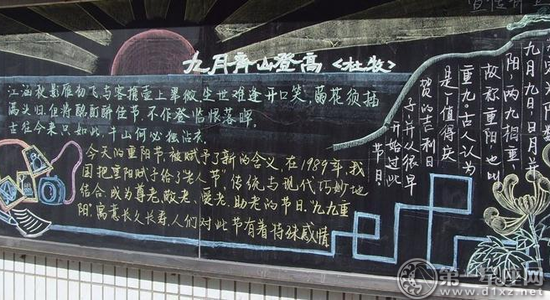 九月齐山登高 <杜牧>
江涵秋影雁初飞与客携壶上翠微尘世难逢开口笑,菊花须插
满头归,但将酩酊酬佳节,不作登临恨落晖,
古往今来只如此,牛山何必独沾衣.
今天的重阳节,被赋予了新的含义,在1989年,我
国把重阳赋予给了"老人节",传统与现代巧妙地
结合,成为尊老、敬老、爱老、助老的节日,"九九重
阳",寓意长久长寿,人们对此节有着特殊感情
九月九日日月并
阳,两九相重,
故称重阳,也叫
重九,古人认为
是个值得庆
贺的吉利日
子,并从很早
开始过此
节日
第一星座网
www.d1xz.net